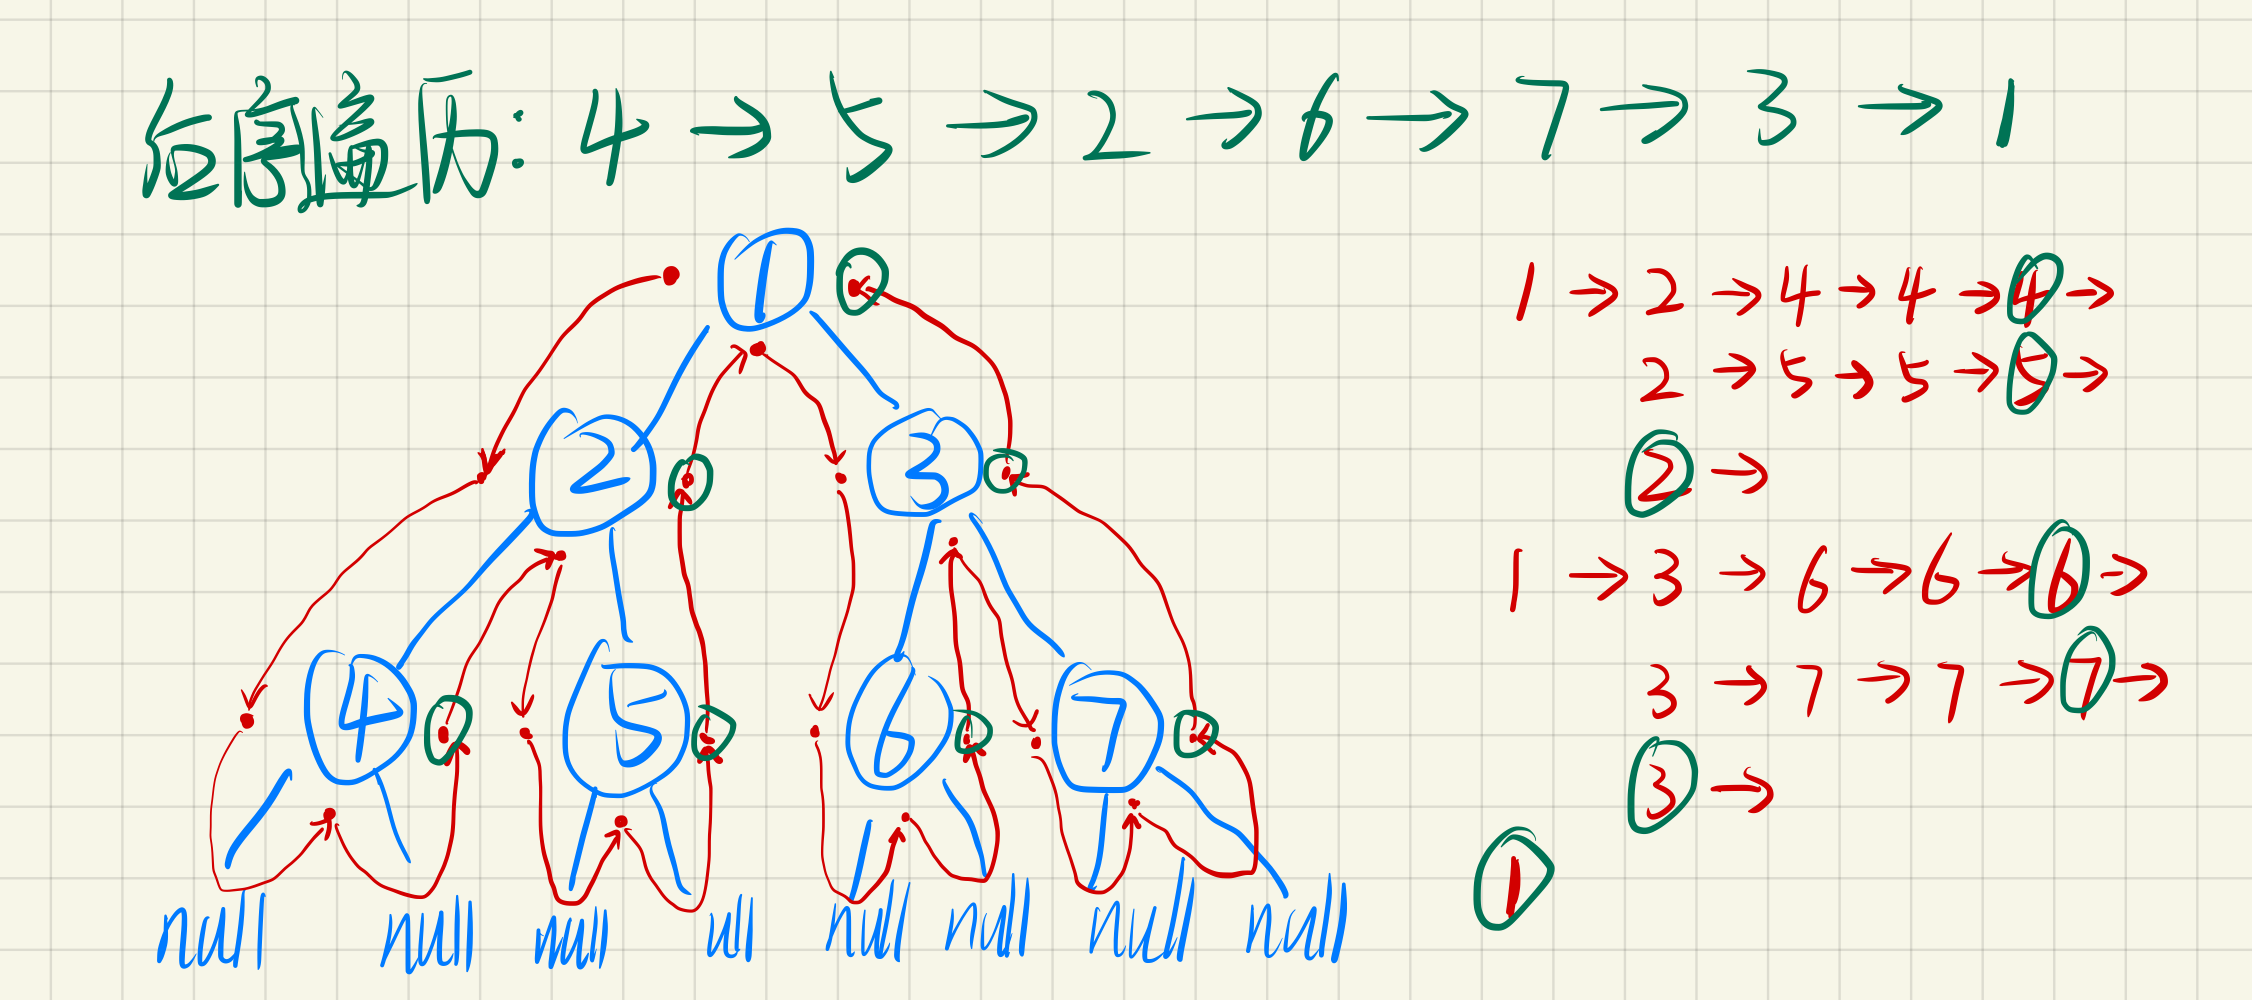 后序遍历: 4 → 5 → 2 → 6 → 7 → 3 → 1
1
2 3
4 5 6 7
null null null ull null null null null
1 → 2 → 4 → 4 → 4 →
2 → 5 → 5 → 5 →
2 →
1 → 3 → 6 → 6 → 6 →
3 → 7 → 7 → 7 →
3 →
1